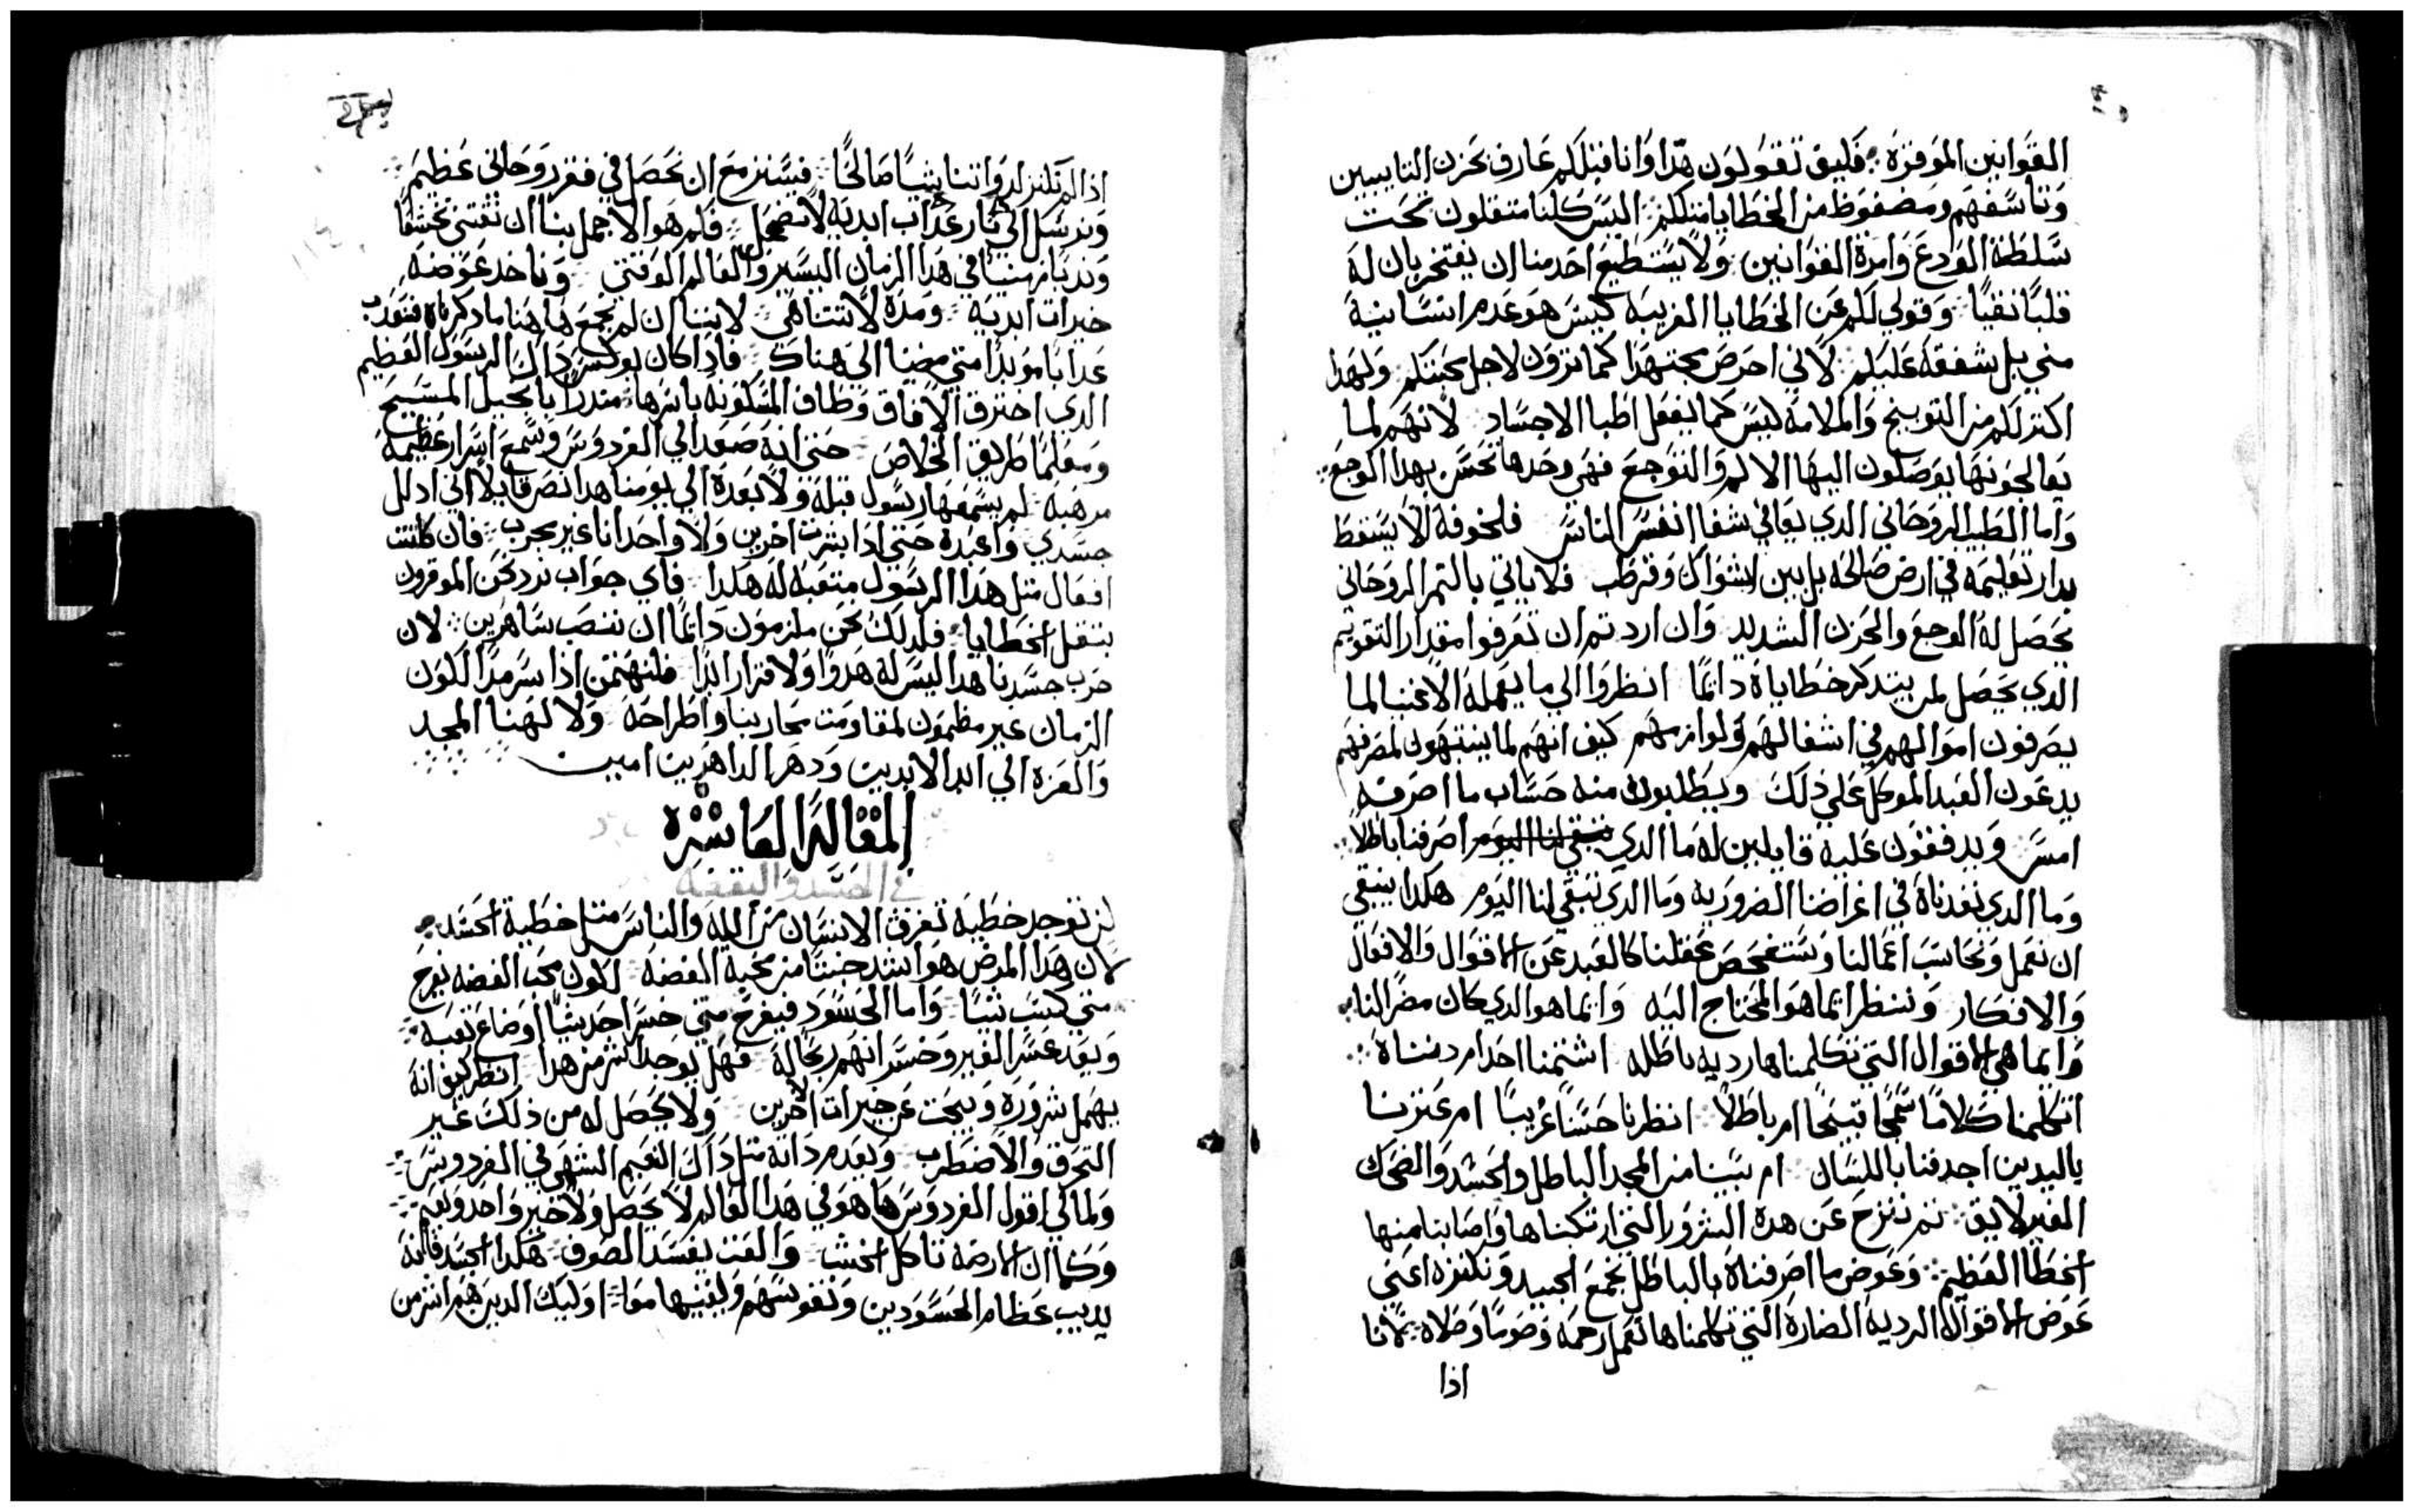 القوانين الموقره فكيف تقولون هذا وانا قبلكم عارف بحزن التايبين
وتاسفهم ومضغوط من الخطايا مثلكم اليس كلنا متقلون تحت
سلطة الوردع وامرة القوانين ولا يستطيع احد منا ان يفتخر بان له
قلبا نقيا وقولي لكم عن الخطايا الغريبه ليس هو عدم انسانية
مني بل شفقه عليكم لاني احرص مجتهدا كما ترون لاجل محبتكم ولهدا
اكتر لكم من التوبيخ والملامه ليس كما يفعل اطبا الاجساد لانهم لما
يعالجونها يوصلون اليها الالم والتوجع فهي وحدها تحس بهدا الوجع
واما الطبيب الروحاني الدي يعاني شفا انفس الناس فلخوفه الا يسقط
بدار تعليمه في ارض صالحه بل بين اشواك وقرطب فلا ياتي بالتمر الروحاني
يحصل له الوجع والحزن الشديد وان اردتم ان تعرفوا مقدار التقويم
الدي يحصل لمن يتدكر خطاياه دايما انظروا الي ما يعمله الاغنيا لما
يصرفون اموالهم في اشغالهم ولوازمهم كيف انهم لما ينتبهون لمصرفهم
يدعون العبد الموكل علي ذلك ويطلبون منه حساب ما اصرفه
امس ويدققون عليه قايلين له ما الدي اصرفنا باطلا
وما الدي نفدناه في اغراضنا الضروريه وما الدي تبقي لنا اليوم هكدا ينبغي
ان نعمل ونحاسب اعمالنا ونستفحص عقلنا كالعبد عن الاقوال والافعال
والافكار وننظر ايما هو المحتاج اليه وايما هو الدي كان مضرا لنا
وايما هي الاقوال التي تكلمناها رديه باطله اشتمنا احدا ام دنناه
اتكلمنا كلاما سمجا قبيحا ام باطلا انظرنا حسنا غريبا ام عترنا
باليدين اجدفنا باللسان ام بشينا من المجد الباطل والحسد والضحك
الغير لايق تم ننزح عن هده الشرور التي ارتكبناها واصابنا منها
الخطا العظيم وعوض ما اصرفناه بالباطل نجمع الجيد ونكنزه اعني
عوض الاقوال الرديه الضاره التي تكلمناها نعمل رحمه وصوما وصلاه لاننا
اذا
اذا لم نكنز لدواتنا شيا صالحا فيستنزمع ان نحصل في فقر روحاني عظيم
ونرسل الي نار عداب ابديه لا تضمحل فلم هو الاجمل بنا ان نقتني تخشفا
وتدبا زمنيا في هدا الزمان اليسير والعالم الوقتي وناخد عوضه
خيرات ابديه ومده لا تتناهي لاننا ان لم نجمع هاهنا ما دكرناه فنعدب
عدابا موبدا متي مضينا الي هناك فادا كان بولس داك الرسول العظيم
الدي اخترق الافاق وطاف المسكونه باسرها مندرا بانجيل المسيح
ومعلما طريق الخلاص حتي انه صعد الي الفردوس وسمع اسرار عظيمه
مرهبه لم يسمعها رسول قبله ولا بعده الي يومنا هدا نصر قايلا اني ادلل
جسدي واعبده حتي ادا بشرت اخرين ولا واحد انا غير مجرب فان كانت
افعال متل هدا الرسول متعبه له هكدا فاي جواب نرد نحن الموقرون
بتقل الخطايا فلدلك نحن ملزمون دايما ان ننصب ساهرين لان
حرب جسدنا هدا ليس له هدوا ولا قرار ابدا فلنهتمن اذا سرمدا لكون
الزمان غير مظمون لمقاومت محاربنا واطراحه ولالهنا المجد
والعزه الي ابد الابدين ودهر الداهرين امين
المقالة العاشره
في الحسد والبغضه
لن توجد خطيه تفرق الانسان من الله والناس متل خطية الحسد
لان هدا المرض هو اشد خبتا من محبة الفضه لكون محب الفضه يفرح
متي كسب شيا واما الحسود فيفرح متي خسر احد شيا اوضاع تعبه
ويعد خسر الغير وخسرانهم ربحا له فهل يوجد اشر من هدا انظر كيف انه
يهمل شروره ويبحت عن خيرات الاخرين ولا يحصل له من ذلك غير
التحرق والاضطرب ويعدم داته متل داك النعيم الشهي في الفردوس
ولمالي اقول الفردوس ها هو في هدا العالم لا يحصل ولا خير واحد ونعيم
وكما ان الارضه تاكل الخشب والعت يفسد الصوف هكدا الحسد فانه
يديب عظام الحسودين ونفوسهم ويفنيها معا اوليك الدين هم اشر من